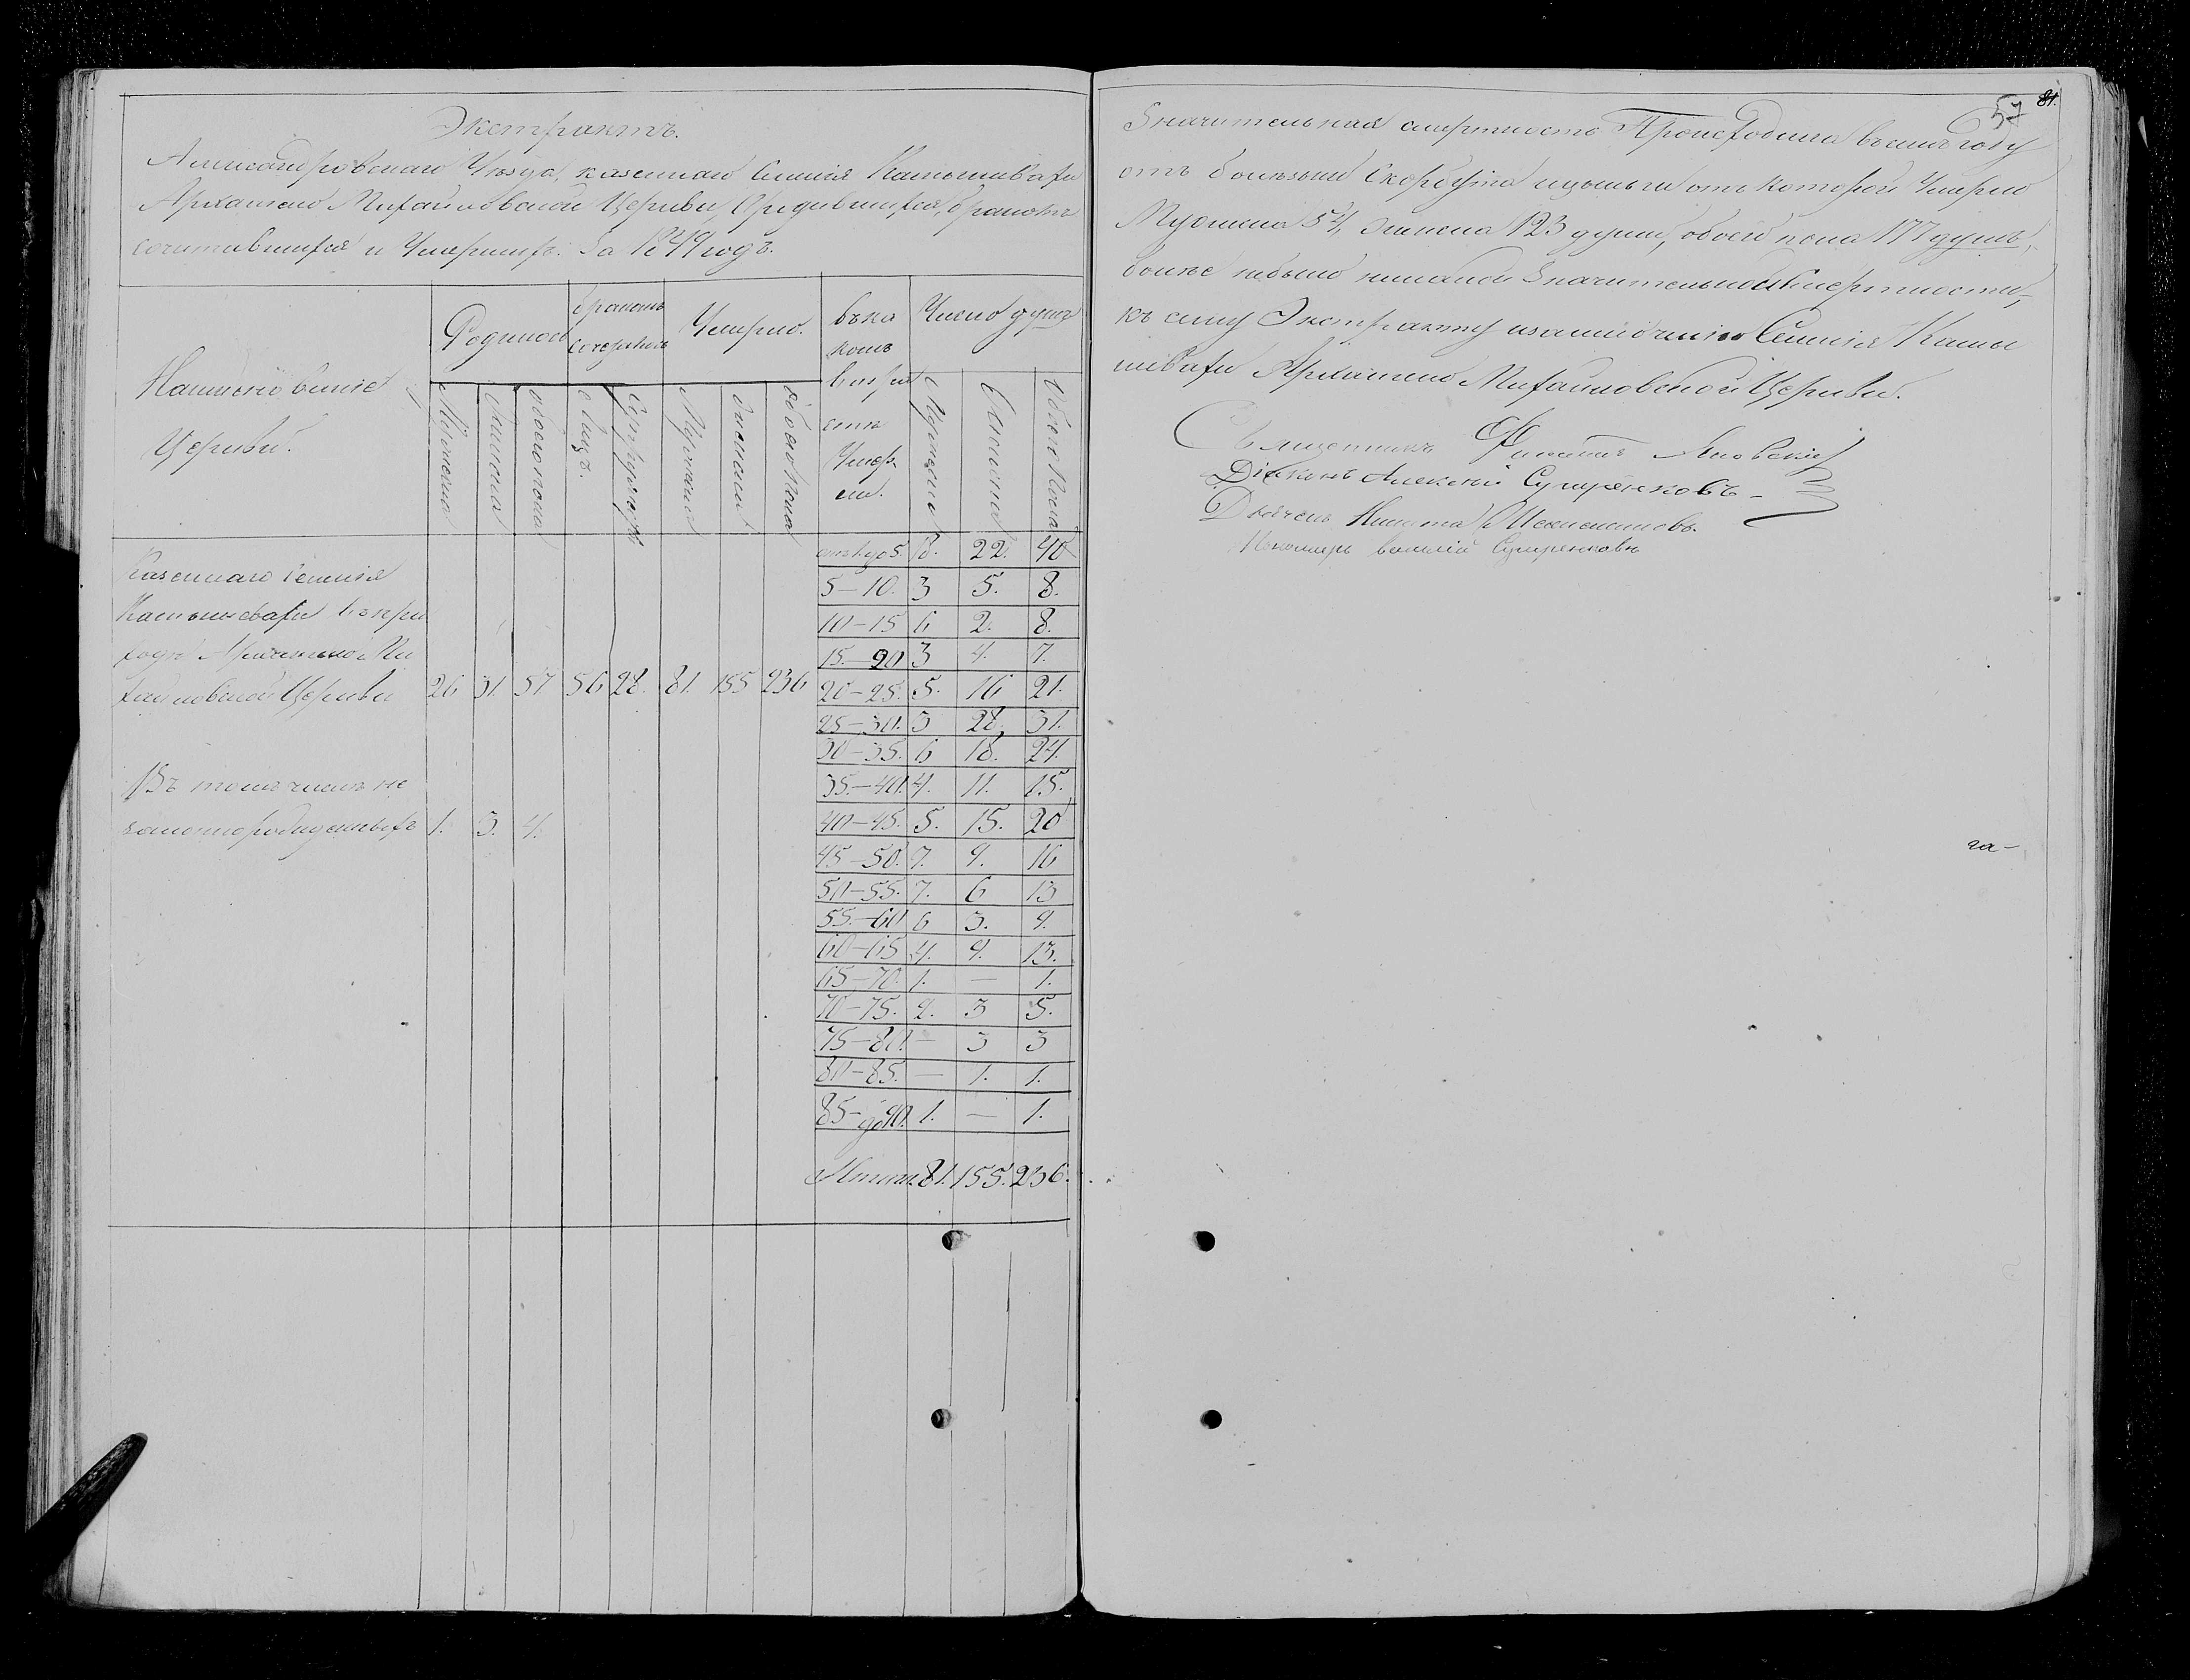 Экстрактъ.
Александровскаго Уѣзда, казеннаго Селенія Камышевахи
Архангело Михайловской Церкви, О родившихся, бракомъ
сочитавшихся и Умершихъ. За 1849 годъ.
Наименованіе
Церкви.
Родилось
Бракомъ
сочетались
Умерло.
въ ка
комъ
возра
стѣ
Умер
ли.
Число душъ
Мужеска
Женска
обоего пола
Лицъ.
Супружествъ
Мужеска
Женска
обоего пола
Мужеска
Женска
Обоего пола
Казеннаго Селенія
Камышевахи въ при
ходѣ Архангело Ми
хайловской Церкви 26 31. 57 56 28. 81. 155 236
Въ томъ числѣ не
законнорожденныхъ 1. 3. 4.
до 5. 18. 22. 40
5—10. 3 5. 8.
10—15 6 2. 8.
15.—20 3 4. 7.
20—25. 5. 16 21.
25—30. 3 28. 31.
30—35. 6 18. 24.
35.—40. 4. 11. 15.
40—45. 5. 15. 20
45—50. 7. 9. 16
50—55. 7. 6 13
55.—60 6 3. 9.
60—65 4. 9. 13.
65—70. 1. — 1.
70—75. 2. 3 5.
75—80. — 3 3
80—85. — 1. 1.
85—до 90. 1. — 1.
Итого. 81. 155. 236.
57 81.
Значительная смертность Происходила въ семъ году
отъ болѣзни Скорбута и цынги отъ которой Умерло
Мужеска 54, Женска 123 души, обоего пола 177 душъ,
болѣе небыло никакой Значительной Смертности,
къ сему Экстракту Селенія Камы
шевахи Архангело Михайловской Церкви.
Священникъ Яновскій
Діаконъ Алексій Сущенковъ
Дьячекъ Никита
Пономарь Василій Сущенковъ
га—